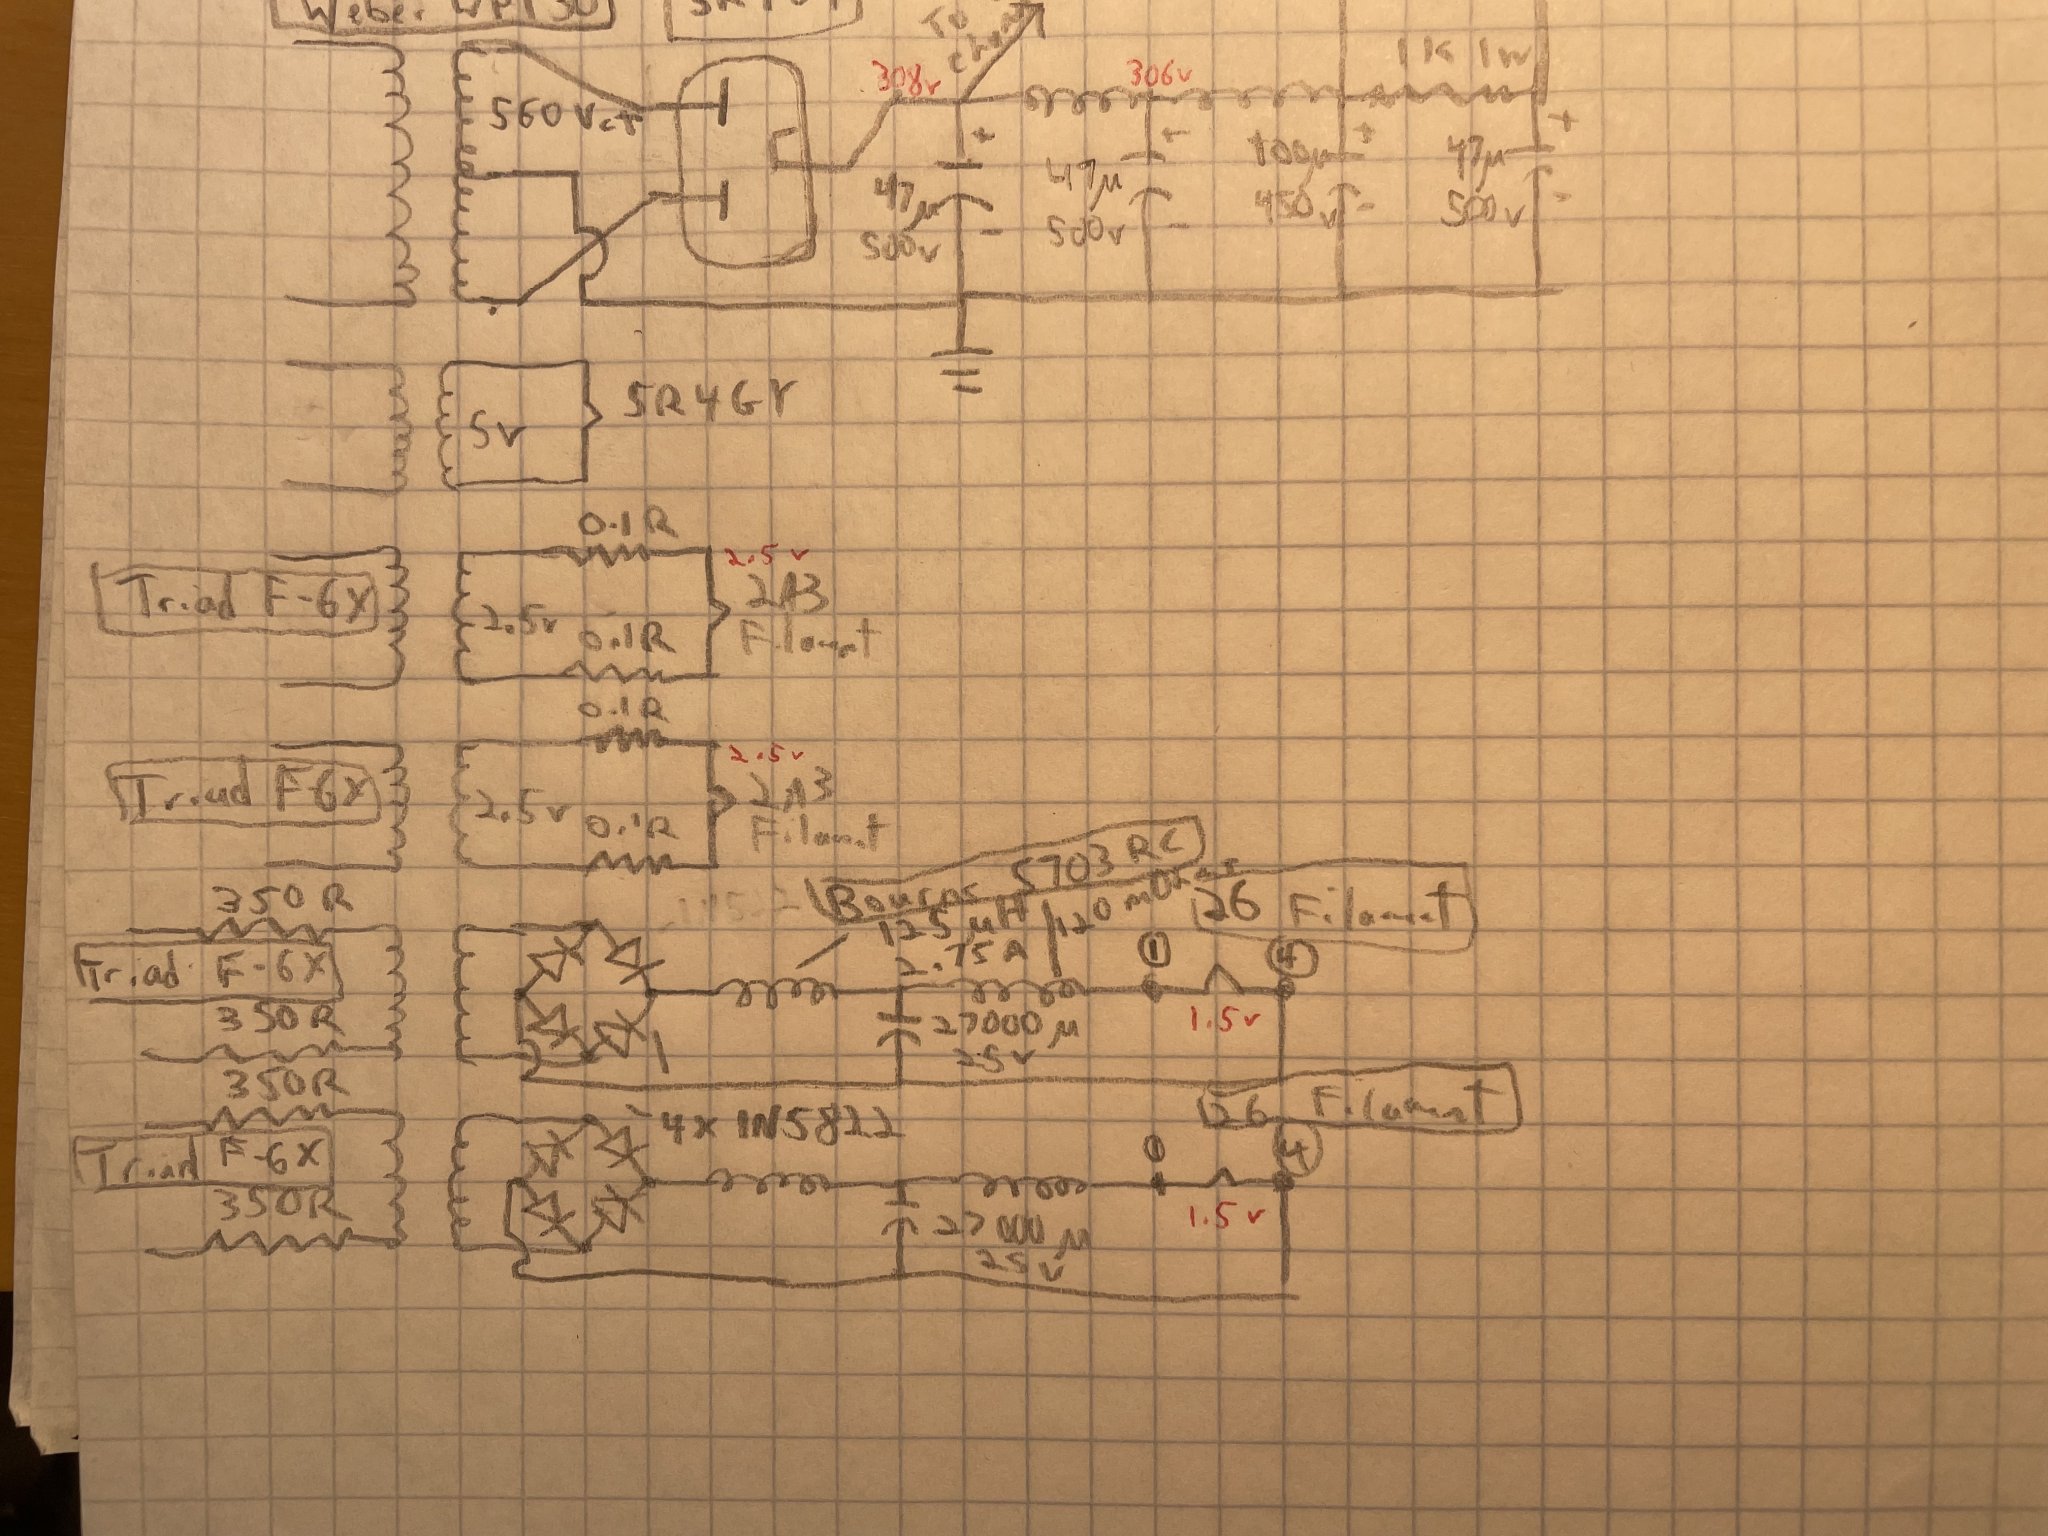 Weber
To
308v
306v
1K 1W
560 Vct
+
+
+
+
47µ
500v
47µ
500v
100µ
450v
47µ
500v
-
-
-
-
5v
5R4GY
0.1R
2.5v
Triad F-6X
2.5v
2A3
0.1R
Filament
0.1R
2.5v
Triad F-6X
2.5v
2A3
0.1R
Filament
Bourns 5703 RC
350R
125 µH 120 mOhms
26 Filament
Triad F-6X
2.75A
1
4
350R
27000µ
1.5v
25v
350R
4x 1N5822
26 Filament
Triad F-6X
1
4
350R
27000µ
1.5v
25v